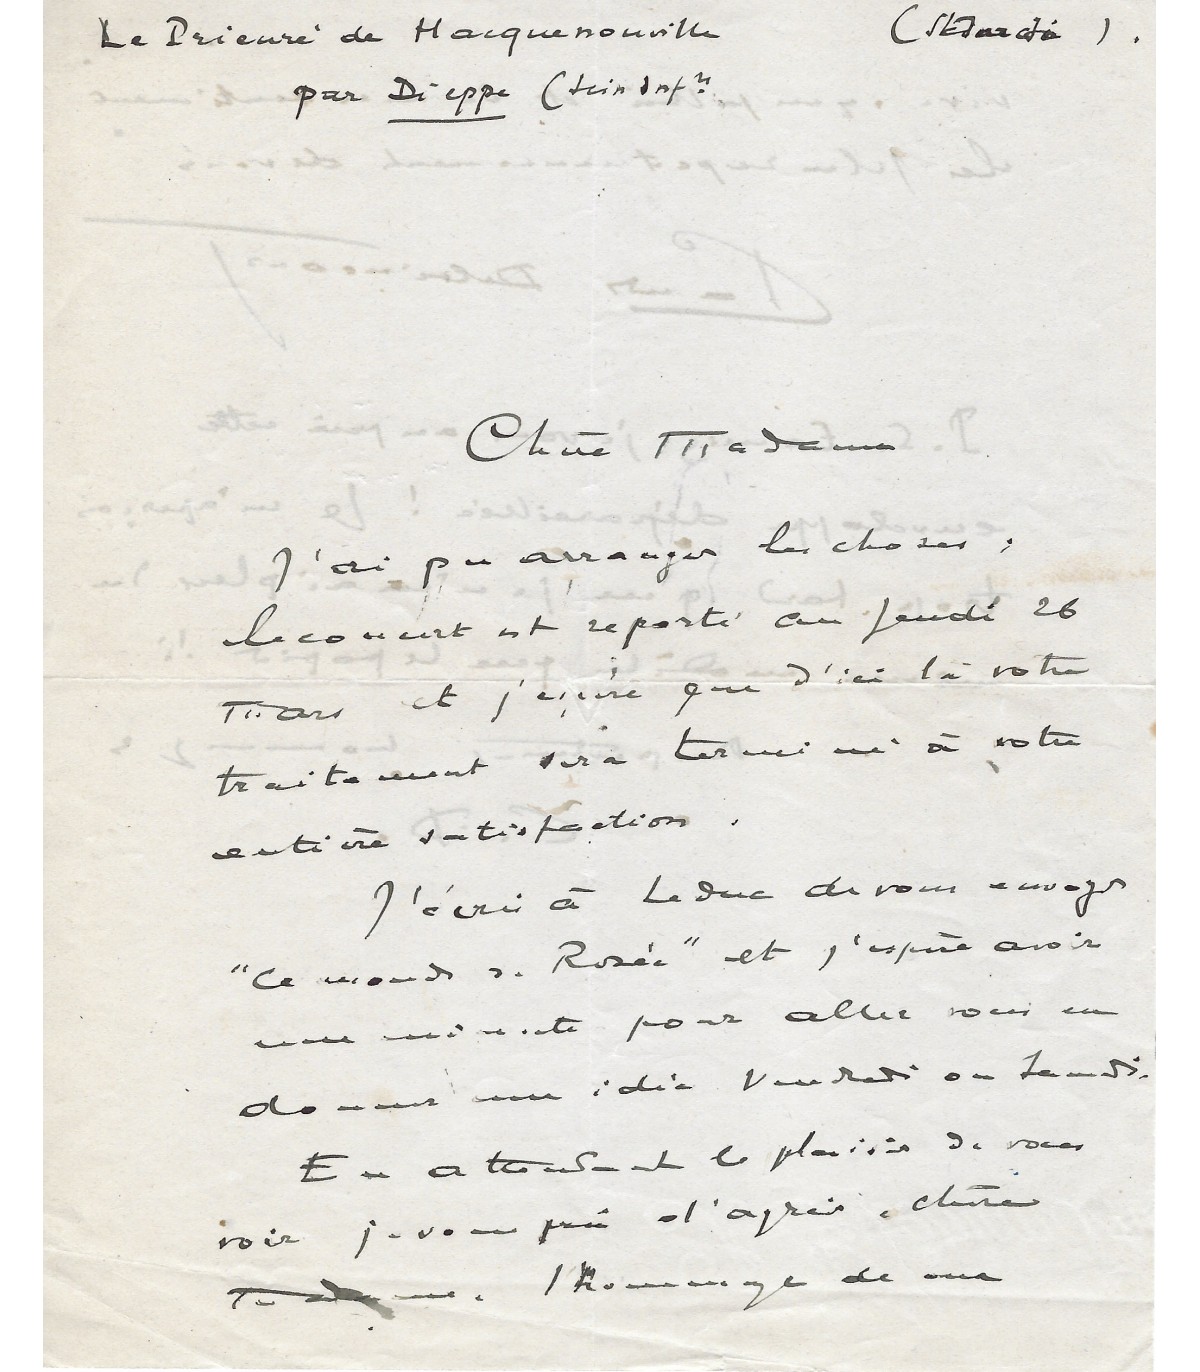 Le Prieuré de Hacquenouville
par Dieppe (Seine Infre
Chère Madame
J'ai pu arranger les choses ;
le concert est reporté au Jeudi 26
Mars et j'espère que d'ici là votre
traitement sera terminé à votre
entière satisfaction.
J'écris à Leduc de vous envoyer
"Ce monde de Rosée" et j'espère avoir
une minute pour aller vous en
donner une idée Vendredi ou Lundi.
En attendant le plaisir de vous
voir je vous prie d'agréer, chère
Madame, l'hommage de mes